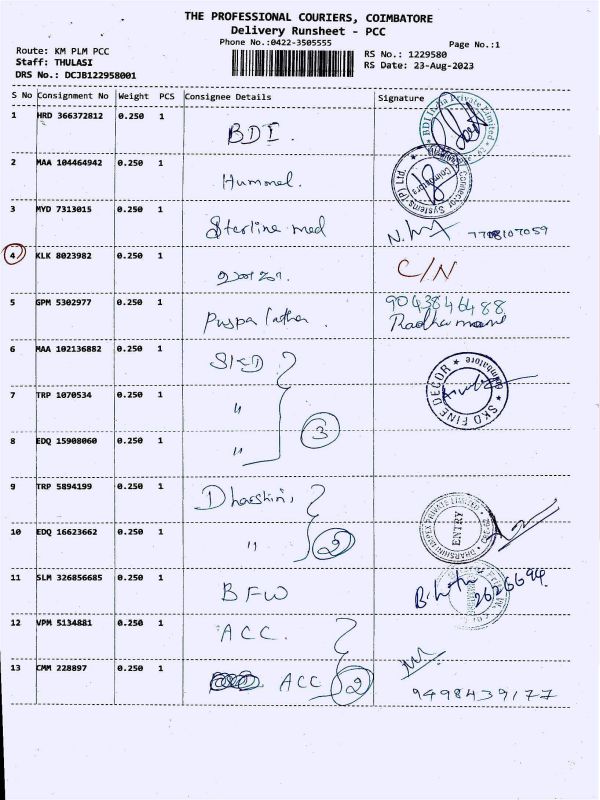 THE PROFESSIONAL COURIERS, COIMBATORE
Delivery Runsheet - PCC
Phone No.:0422-3505555
Page No.:1
Route: KM PLM PCC
RS No.: 1229580
Staff: THULASI
RS Date: 23-Aug-2023
DRS No.: DCJB122958001
S No Consignment No Weight PCS Consignee Details Signature
1 HRD 366372812 0.250 1 BDI. BDI India Private Limited
2 MAA 104464942 0.250 1 Hummel. Connector Systems (P) Ltd. Coimbatore
3 MYD 7313015 0.250 1 Sterline med 7708107059
4 KLK 8023982 0.250 1 C/N
5 GPM 5302977 0.250 1 Puspa latha. 9043846488
Radha mani
6 MAA 102136882 0.250 1 SKD SKD FINE DECOR Coimbatore
7 TRP 1070534 0.250 1 "
8 EDQ 15908060 0.250 1 " 3
9 TRP 5894199 0.250 1 Dharshini, DHARSHINI IMPEX PRIVATE LIMITED ENTRY
10 EDQ 16623662 0.250 1 " 2
11 SLM 326856685 0.250 1 BFW 2626694.
12 VPM 5134881 0.250 1 ACC.
13 CMM 228897 0.250 1 ACC 2 9498439177